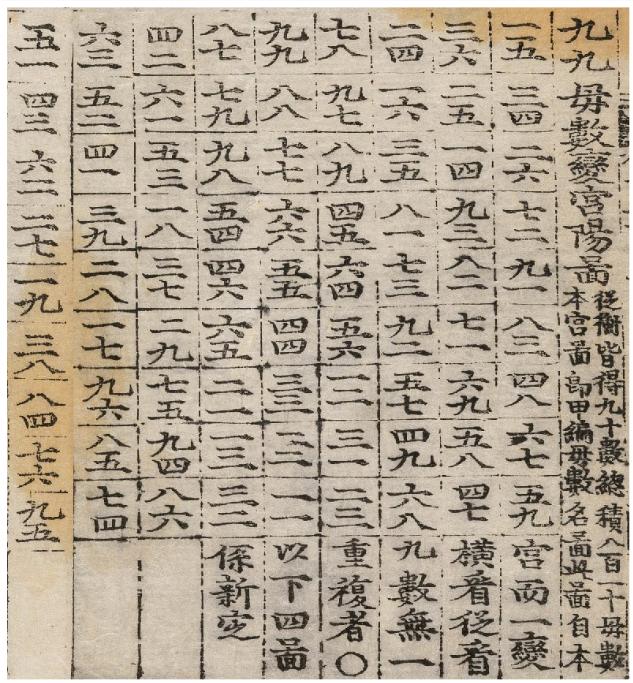 九九母數變宮陽啚
從衡皆得九十數總積八百一十母數
本宮啚卽甲編母數名啚此啚自本
一五 三四 二六 七二 九一 八三 四八 六七 五九 宮而一變
三六 二五 一四 九三 八二 七一 六九 五八 四七 橫看從看
二四 一六 三五 八一 七三 九二 五七 四九 六八 九數無一
七八 九七 八九 四五 六四 五六 一二 三一 二三 重複者〇
九九 八八 七七 六六 五五 四四 三三 二二 一一 以下四啚
八七 七九 九八 五四 四六 六五 二一 一三 三二 係新定
四二 六一 五三 一八 三七 二九 七五 九四 八六
六三 五二 四一 三九 二八 一七 九六 八五 七四
五一 四三 六二 二七 一九 三八 八四 七六 九五